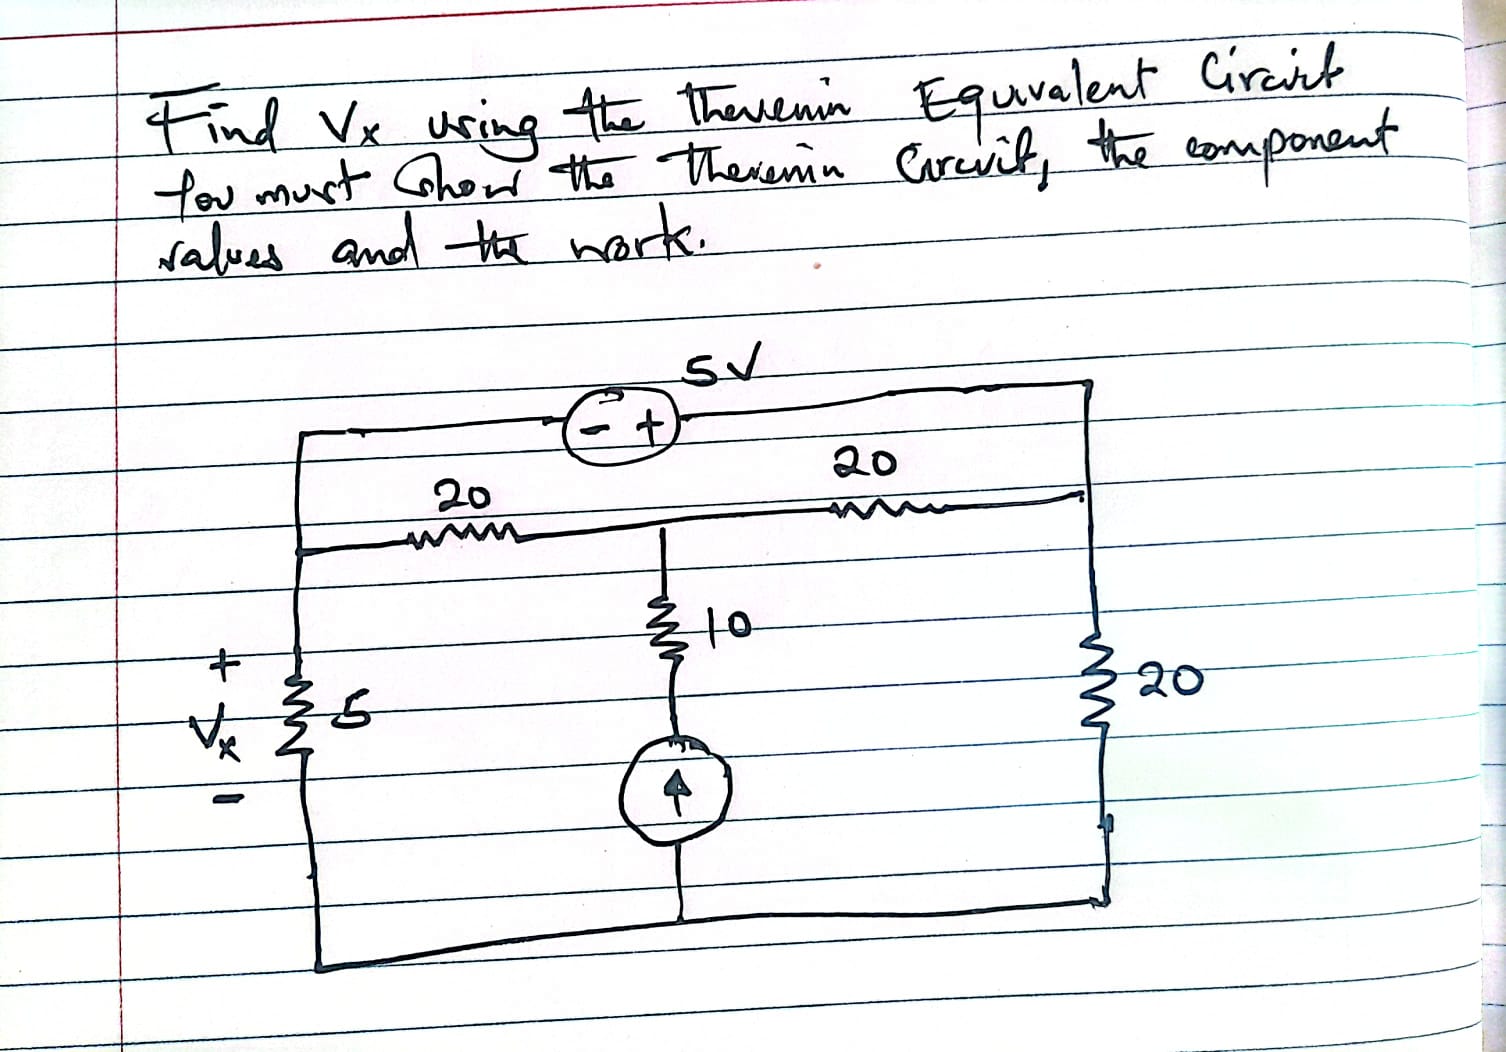 Find Vx using the Thevenin Equivalent Circuit
You must show the Thevenin Circuit, the component
values and the work.
5V
- +
20
20
10
+
Vx
-
5
20